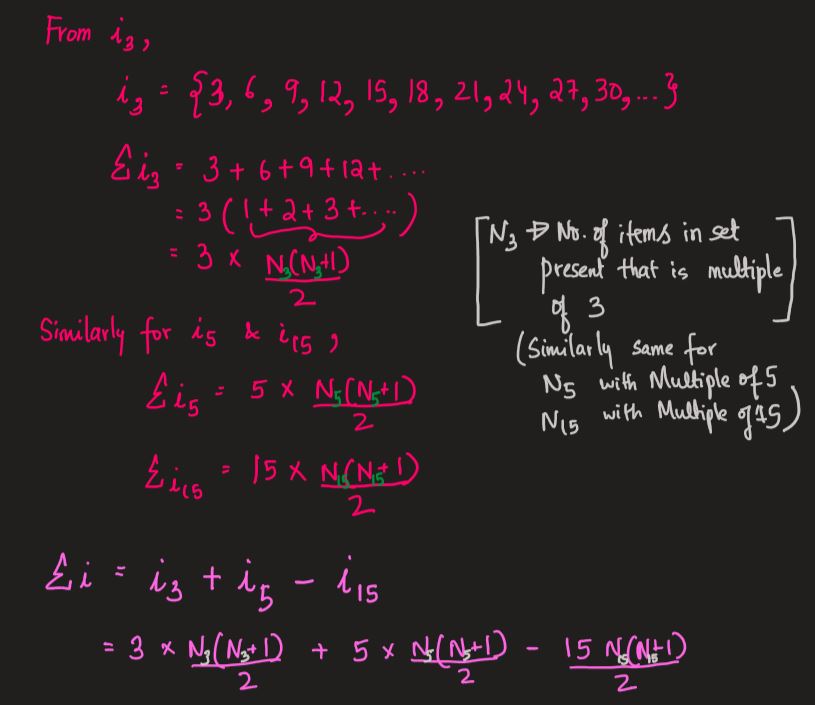 From i₃,
i₃ = {3, 6, 9, 12, 15, 18, 21, 24, 27, 30, ...}
Σi₃ = 3 + 6 + 9 + 12 + ....
= 3 (1 + 2 + 3 + ....)
= 3 × N₃(N₃+1)/2
[N₃ → No. of items in set
present that is multiple
of 3]
Similarly for i₅ & i₁₅,
(Similarly same for
N₅ with Multiple of 5,
N₁₅ with Multiple of 15)
Σi₅ = 5 × N₅(N₅+1)/2
Σi₁₅ = 15 × N₁₅(N₁₅+1)/2
Σi = i₃ + i₅ − i₁₅
= 3 × N₃(N₃+1)/2 + 5 × N₅(N₅+1)/2 − 15 N₁₅(N₁₅+1)/2